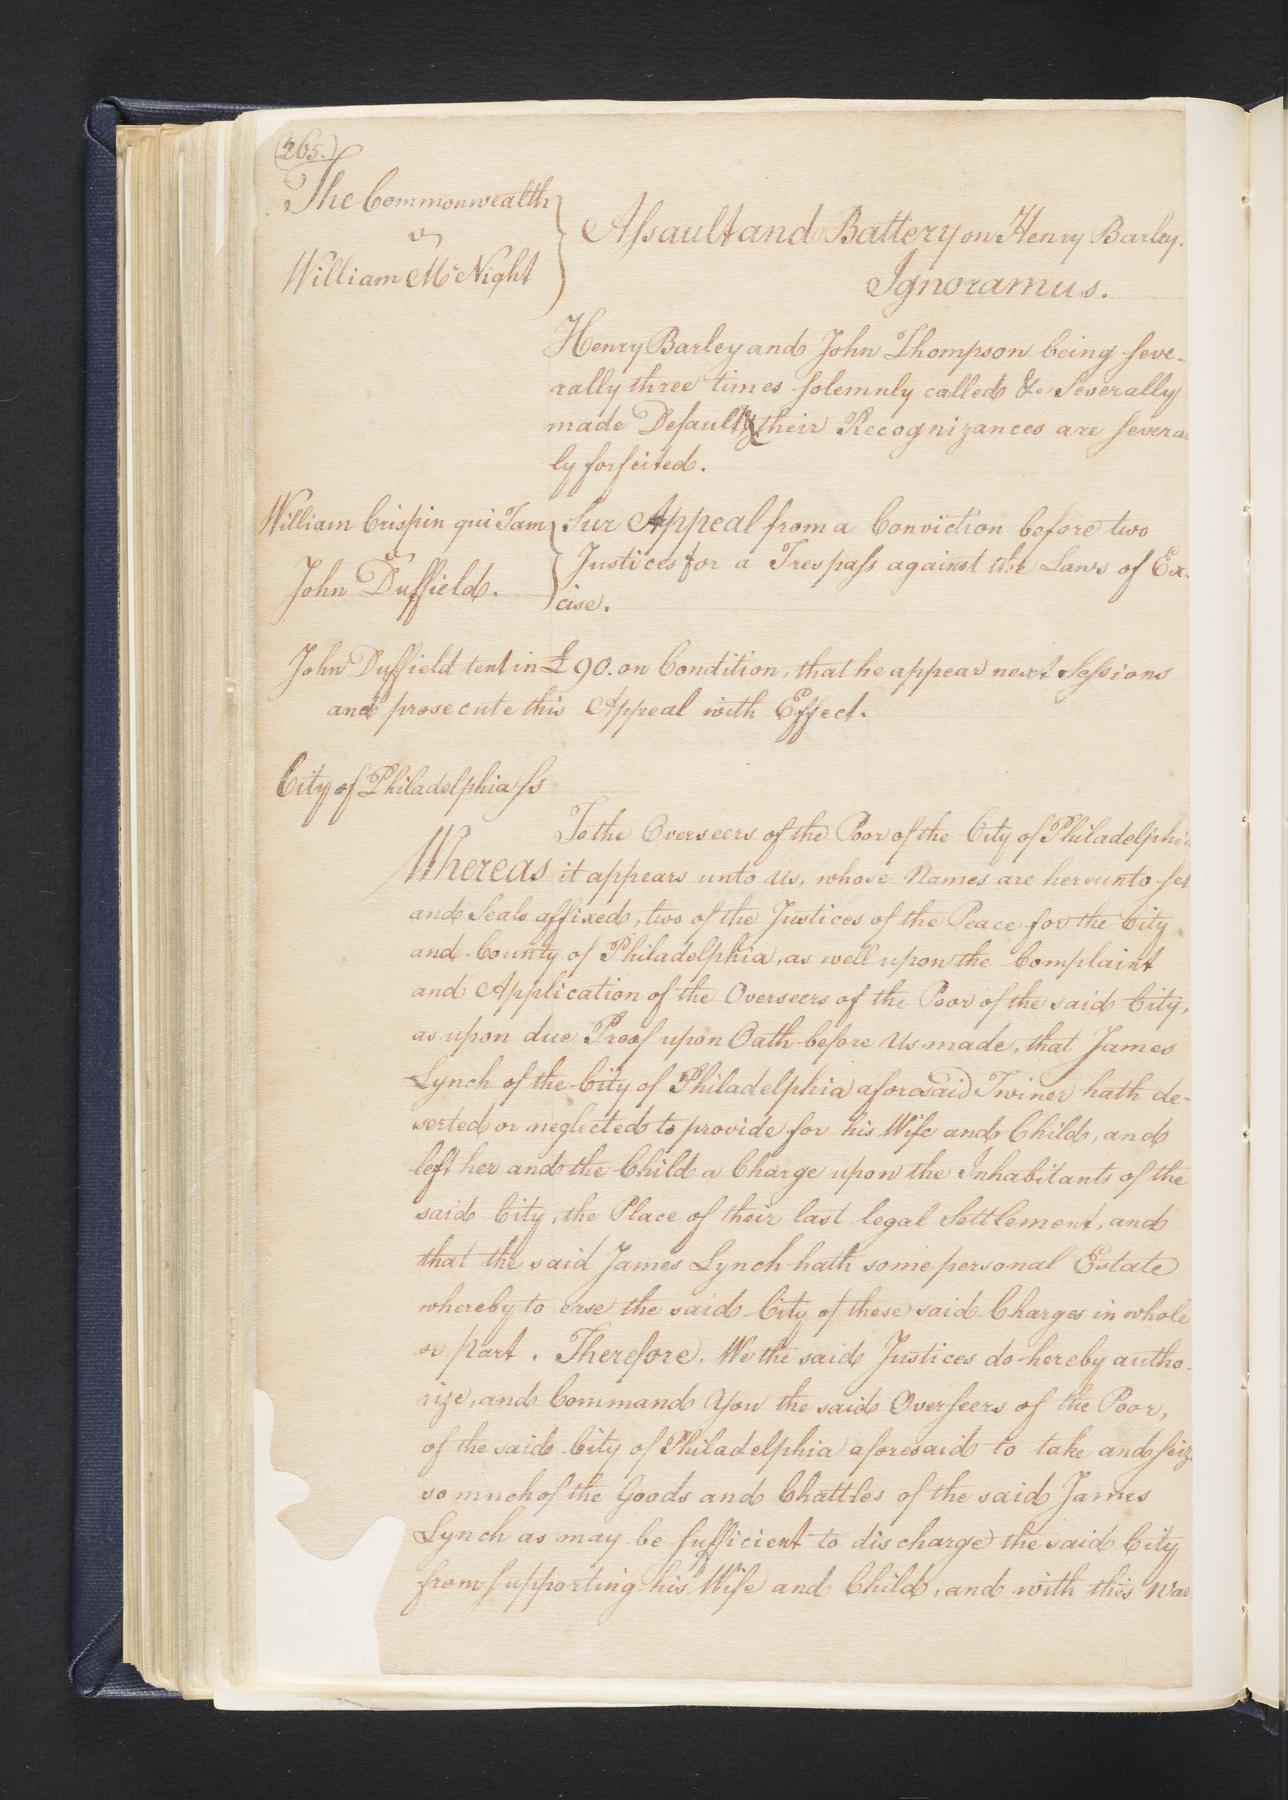 (265.)
The Commonwealth
v
William McNight
Assault and Battery on Henry Barley.
Ignoramus.
Henry Barley and John Thompson being seve-
rally three times solemnly called &c Severally
made Default, their Recognizances are several
ly forfeited.
William Crispin qui Tam
v
John Duffield.
Sur Appeal from a Conviction before two
Justices for a Trespass against the Laws of Ex-
cise.
John Duffield tent in £90. on Condition, that he appear next Sessions
and prosecute this Appeal with Effect.
City of Philadelphia ss
To the Overseers of the Poor of the City of Philadelphia
Whereas it appears unto us, whose Names are hereunto set
and Seals affixed, two of the Justices of the Peace for the City
and County of Philadelphia, as well upon the Complaint
and Application of the Overseers of the Poor of the said City,
as upon due Proof upon Oath before Us made, that James
Lynch of the City of Philadelphia aforesaid Twiner hath de-
serted or neglected to provide for his Wife and Child, and
left her and the Child a Charge upon the Inhabitants of the
said City, the Place of their last legal Settlement, and
that the said James Lynch hath some personal Estate
whereby to ease the said City of these said Charges in whole
or part. Therefore, We the said Justices do hereby autho-
rize, and Command You the said Overseers of the Poor,
of the said City of Philadelphia aforesaid to take and seiz
so much of the Goods and Chattles of the said James
Lynch as may be sufficient to discharge the said City
from supporting his Wife and Child, and with this War